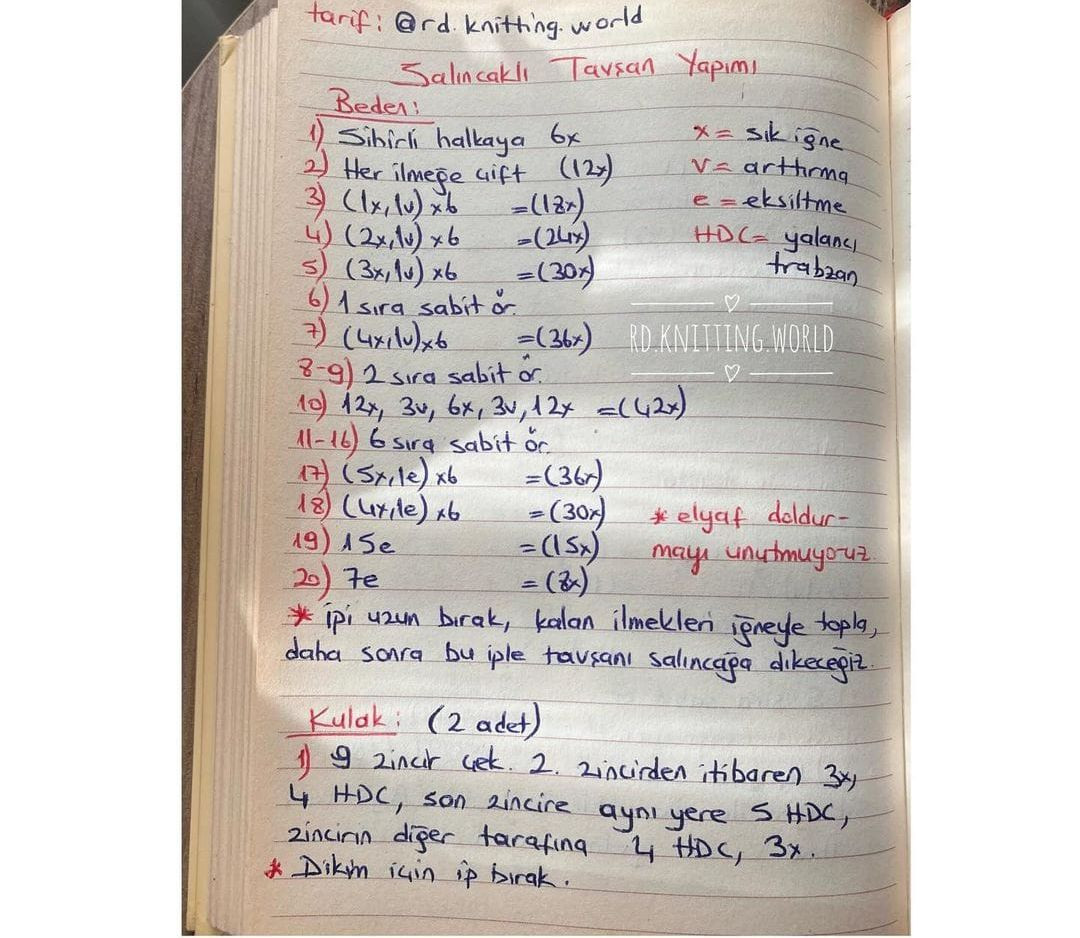 tarif: @rd.knitting.world
Salıncaklı Tavşan Yapımı
Beden:
1) Sihirli halkaya 6x
x = sık iğne
2) Her ilmeğe çift (12x)
v = arttırma
3) (1x,1v)x6 =(18x)
e = eksiltme
4) (2x,1v)x6 =(24x)
HDC= yalancı
trabzan
5) (3x,1v)x6 =(30x)
6) 1 sıra sabit ör.
7) (4x,1v)x6 =(36x)
RD.KNITTING.WORLD
8-9) 2 sıra sabit ör.
10) 12x, 3v, 6x, 3v, 12x =(42x)
11-16) 6 sıra sabit ör.
17) (5x,1e)x6 =(36x)
18) (4x,1e)x6 =(30x)
* elyaf doldur-
mayı unutmuyoruz.
19) 15e =(15x)
20) 7e =(8x)
* ipi uzun bırak, kalan ilmekleri iğneyle topla,
daha sonra bu iple tavşanı salıncağa dikeceğiz.
Kulak: (2 adet)
1) 9 zincir çek. 2. zincirden itibaren 3x,
4 HDC, son zincire aynı yere 5 HDC,
zincirin diğer tarafına 4 HDC, 3x.
* Dikim için ip bırak.